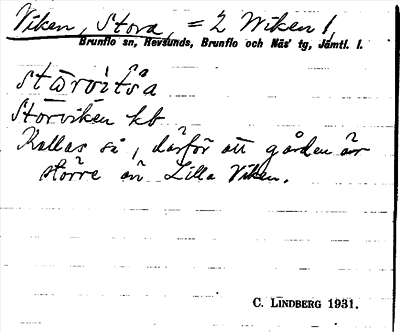 Viken, Stora, = 2 Wiken 1,
Brunflo sn, Revsunds, Brunflo och Näs' tg, Jämtl. l.
Storviken kb
Kallas så, därför att gården är
större än Lilla Viken.
C. LINDBERG 1931.